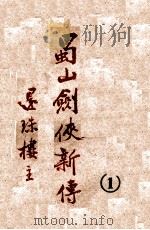 蜀山劍俠新傳
還珠樓主
①